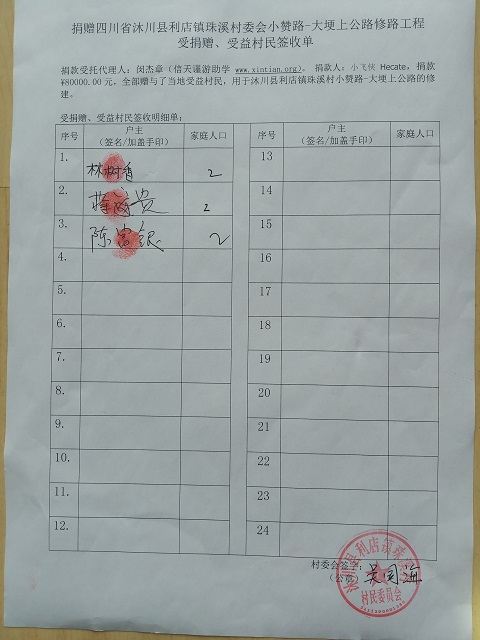 捐赠四川省沐川县利店镇珠溪村委会小赞路-大埂上公路修路工程
受捐赠、受益村民签收单
捐款受托代理人：闵杰章（信天谨游助学 www.xintian.org）。 捐款人：小飞侠 Hecate，捐款
¥80000.00 元，全部赠与了当地受益村民，用于沐川县利店镇珠溪村小赞路-大埂上公路的修
建。
受捐赠、受益村民签收明细单：
序号 户主 家庭人口 序号 户主 家庭人口
（签名/加盖手印） （签名/加盖手印）
1. 林树 2 13
2. 贵 2 14
3. 陈富银 2 15
4. 16
5. 17
6. 18
7. 19
8. 20
9. 21
10. 22
11. 23
12. 24
村委会签字： 吴司海
（公章）
沐川县利店镇珠溪村
村民委员会